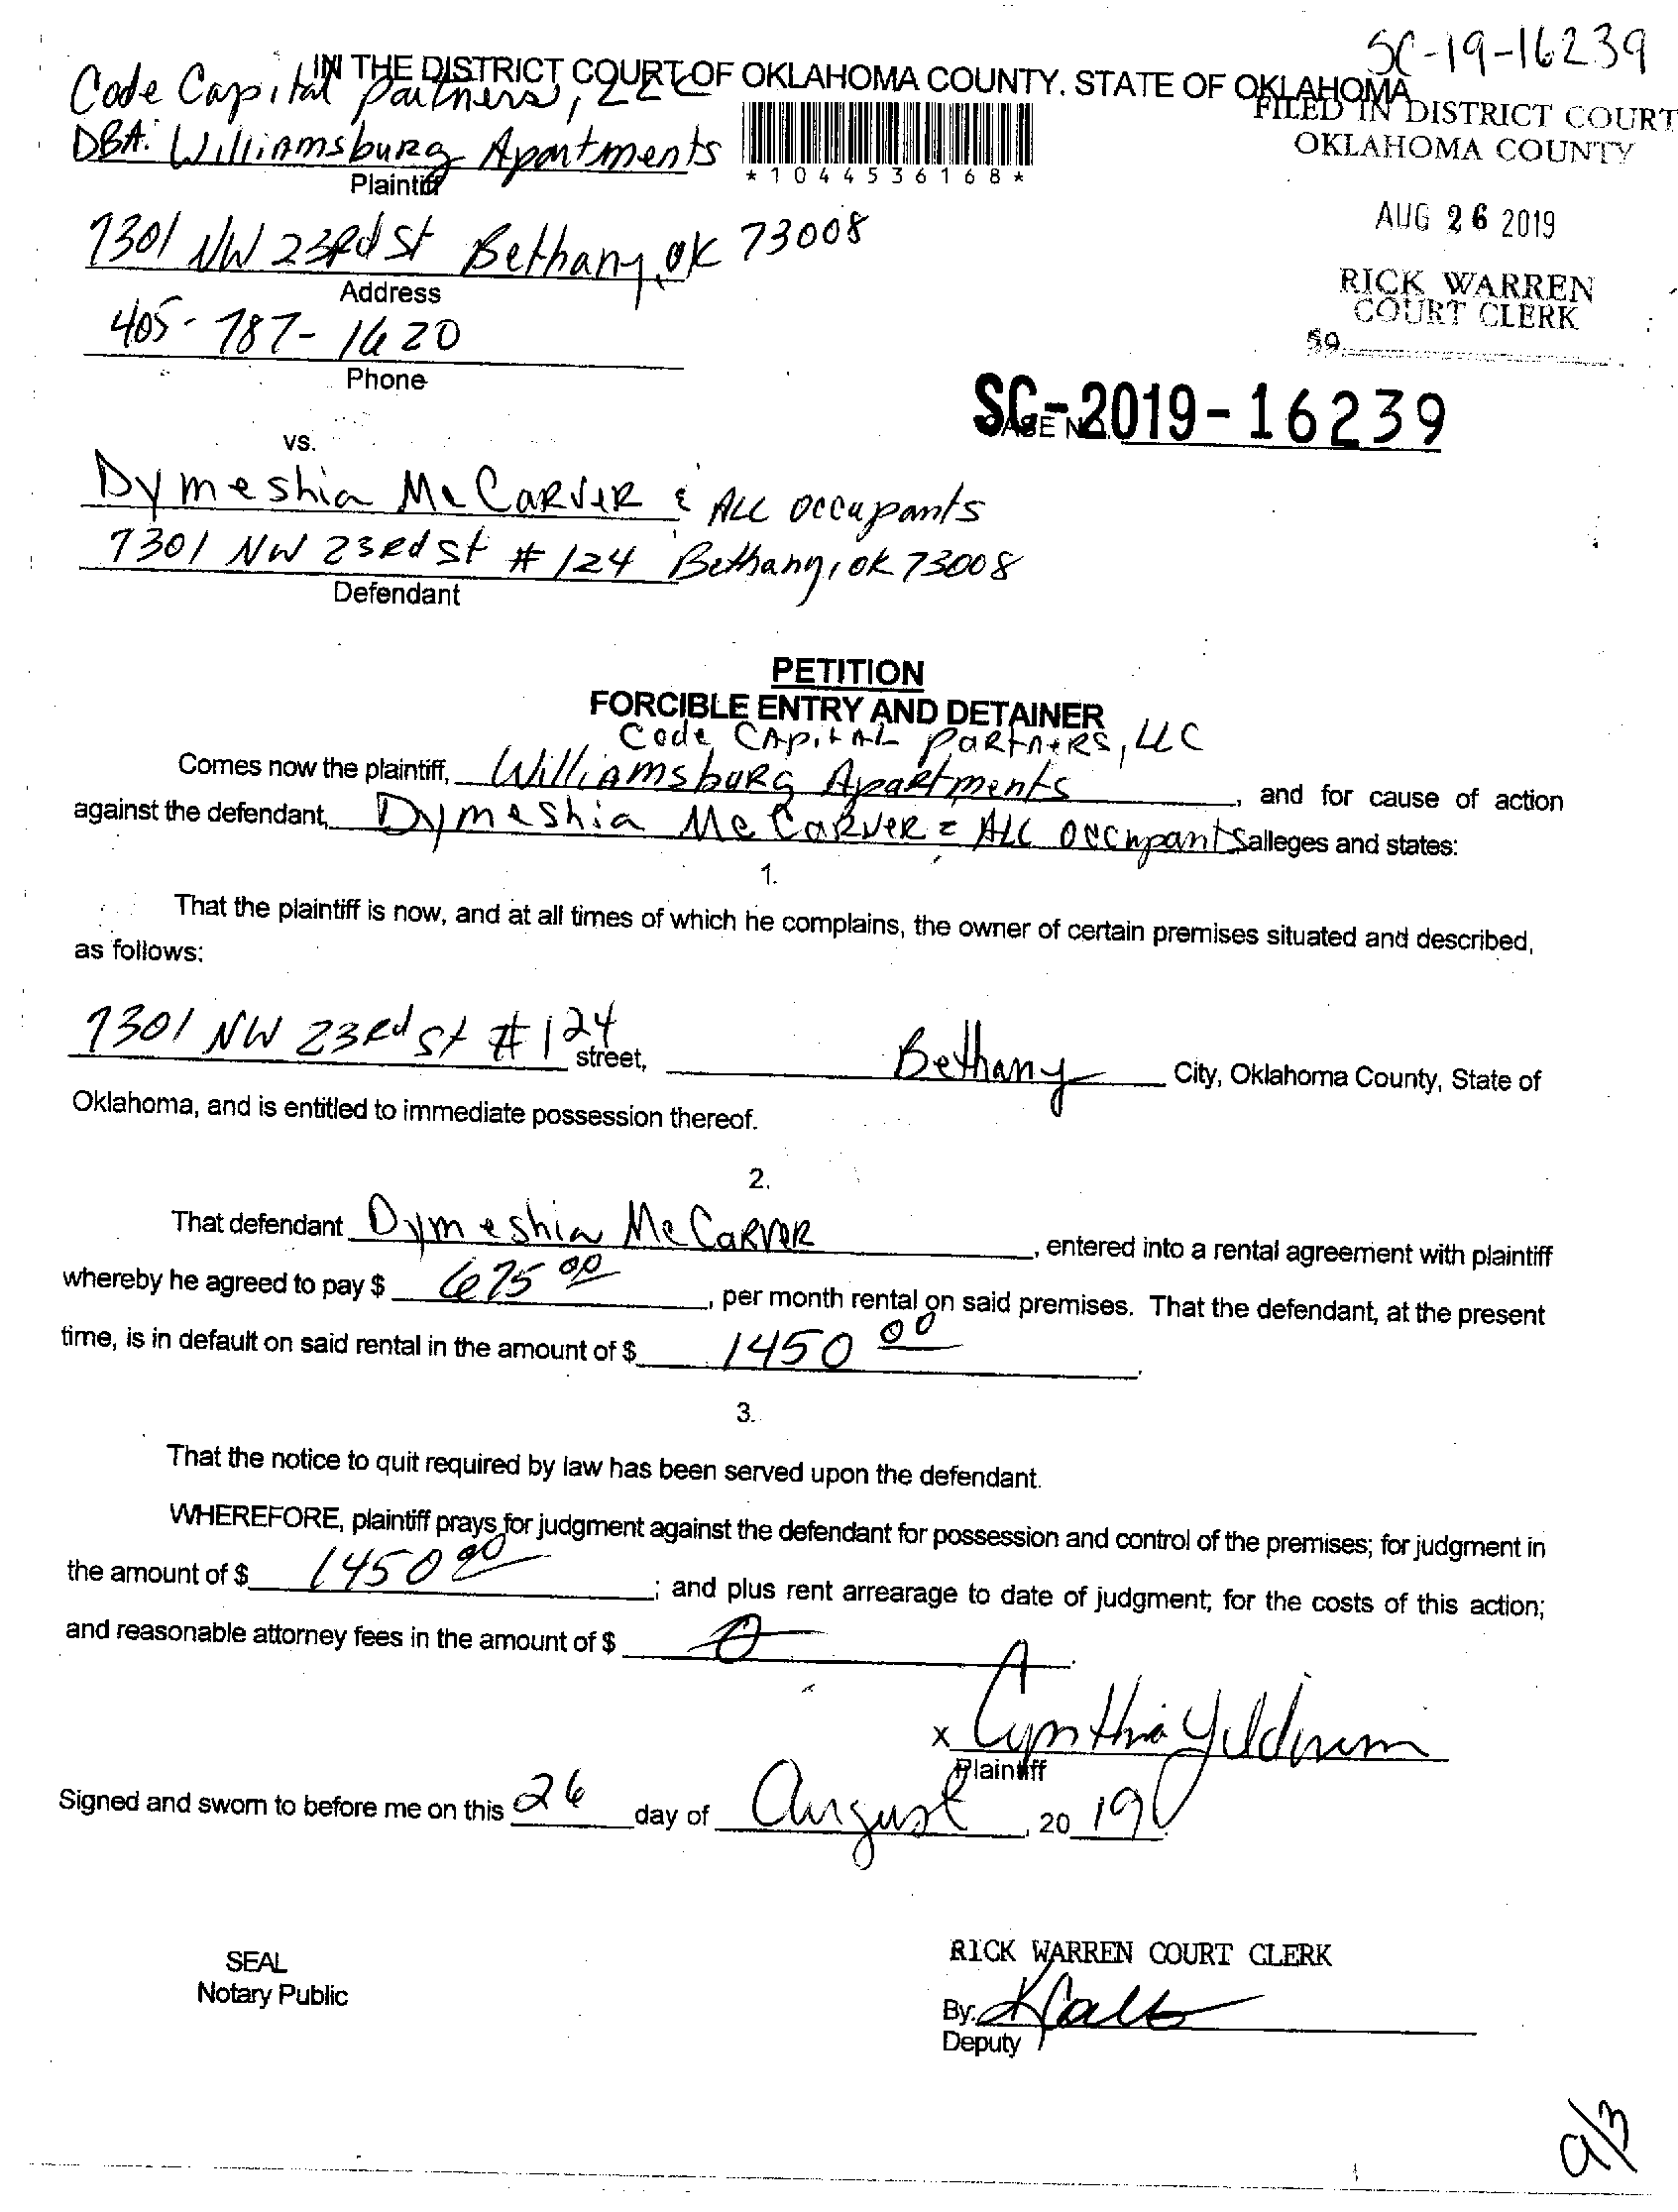 SC-19-16239
IN THE DISTRICT COURT OF OKLAHOMA COUNTY. STATE OF OKLAHOMA
Code Capital Partners, LLC
FILED IN DISTRICT COURT
OKLAHOMA COUNTY
DBA: Williamsburg Apartments
*1044536168*
Plaintiff
AUG 26 2019
7301 NW 23rd St Bethany, OK 73008
Address
RICK WARREN
COURT CLERK
405-787-1620
59
Phone
SC-2019-16239
CASE NO.
vs.
Dymeshia McCarver & ALL Occupants
7301 NW 23rd St #124 Bethany, OK 73008
Defendant
PETITION
FORCIBLE ENTRY AND DETAINER
Code Capital Partners, LLC
Comes now the plaintiff, Williamsburg Apartments, and for cause of action
against the defendant, Dymeshia McCarver & ALL Occupants alleges and states:
1.
That the plaintiff is now, and at all times of which he complains, the owner of certain premises situated and described,
as follows:
7301 NW 23rd St #124 street, Bethany City, Oklahoma County, State of
Oklahoma, and is entitled to immediate possession thereof.
2.
That defendant Dymeshia McCarver, entered into a rental agreement with plaintiff
whereby he agreed to pay $ 675 00, per month rental on said premises. That the defendant, at the present
time, is in default on said rental in the amount of $ 1450 00.
3.
That the notice to quit required by law has been served upon the defendant.
WHEREFORE, plaintiff prays for judgment against the defendant for possession and control of the premises; for judgment in
the amount of $ 1450 00; and plus rent arrearage to date of judgment; for the costs of this action;
and reasonable attorney fees in the amount of $ 0.
x Cynthia Yildirim
Plaintiff
Signed and sworn to before me on this 26 day of August, 20 19
RICK WARREN COURT CLERK
SEAL
Notary Public
By:
Deputy
9/3